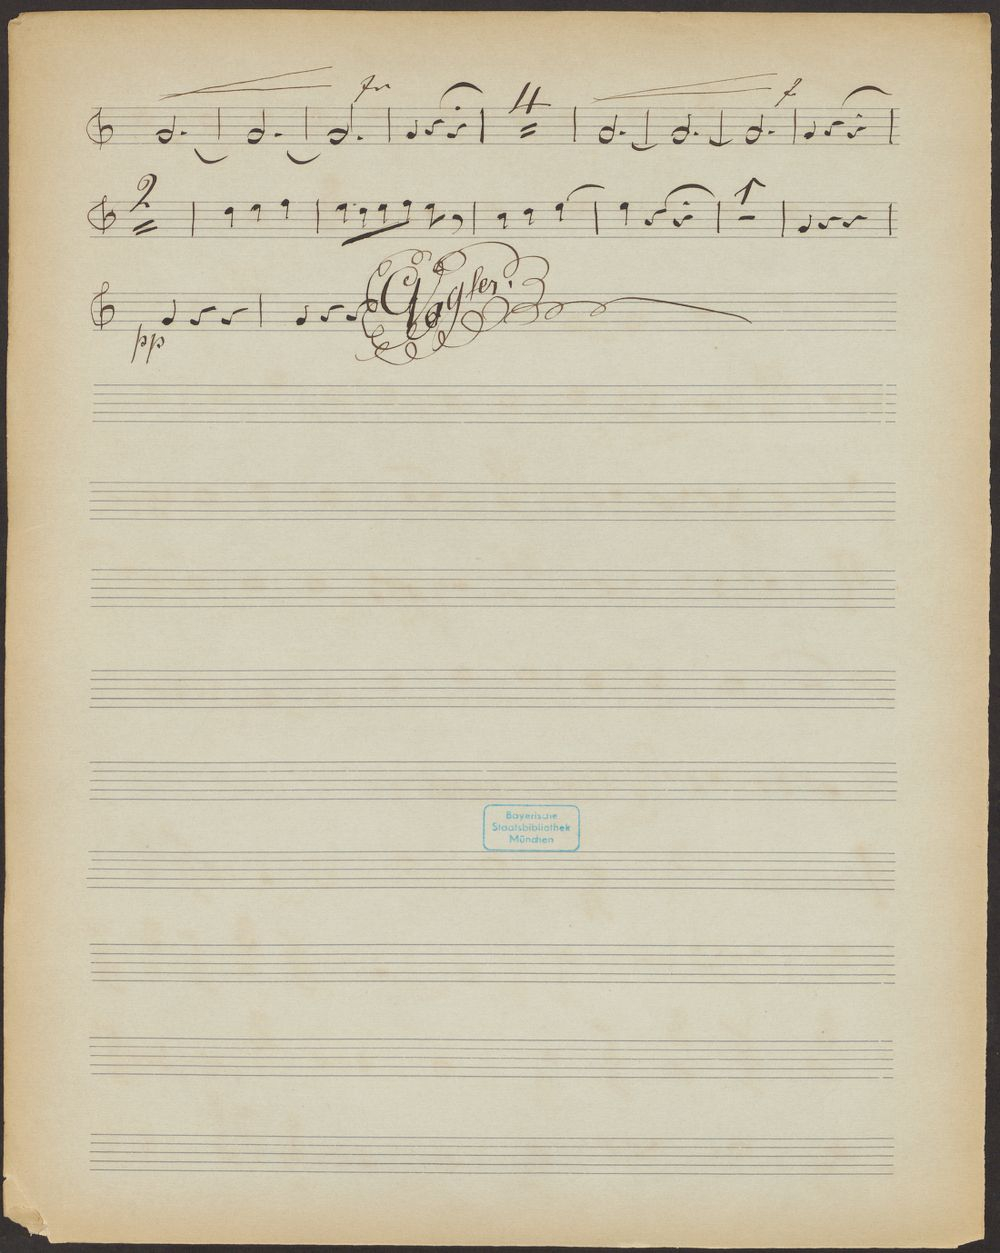 fz 4 f
2 1
pp
Bayerische
Staatsbibliothek
München